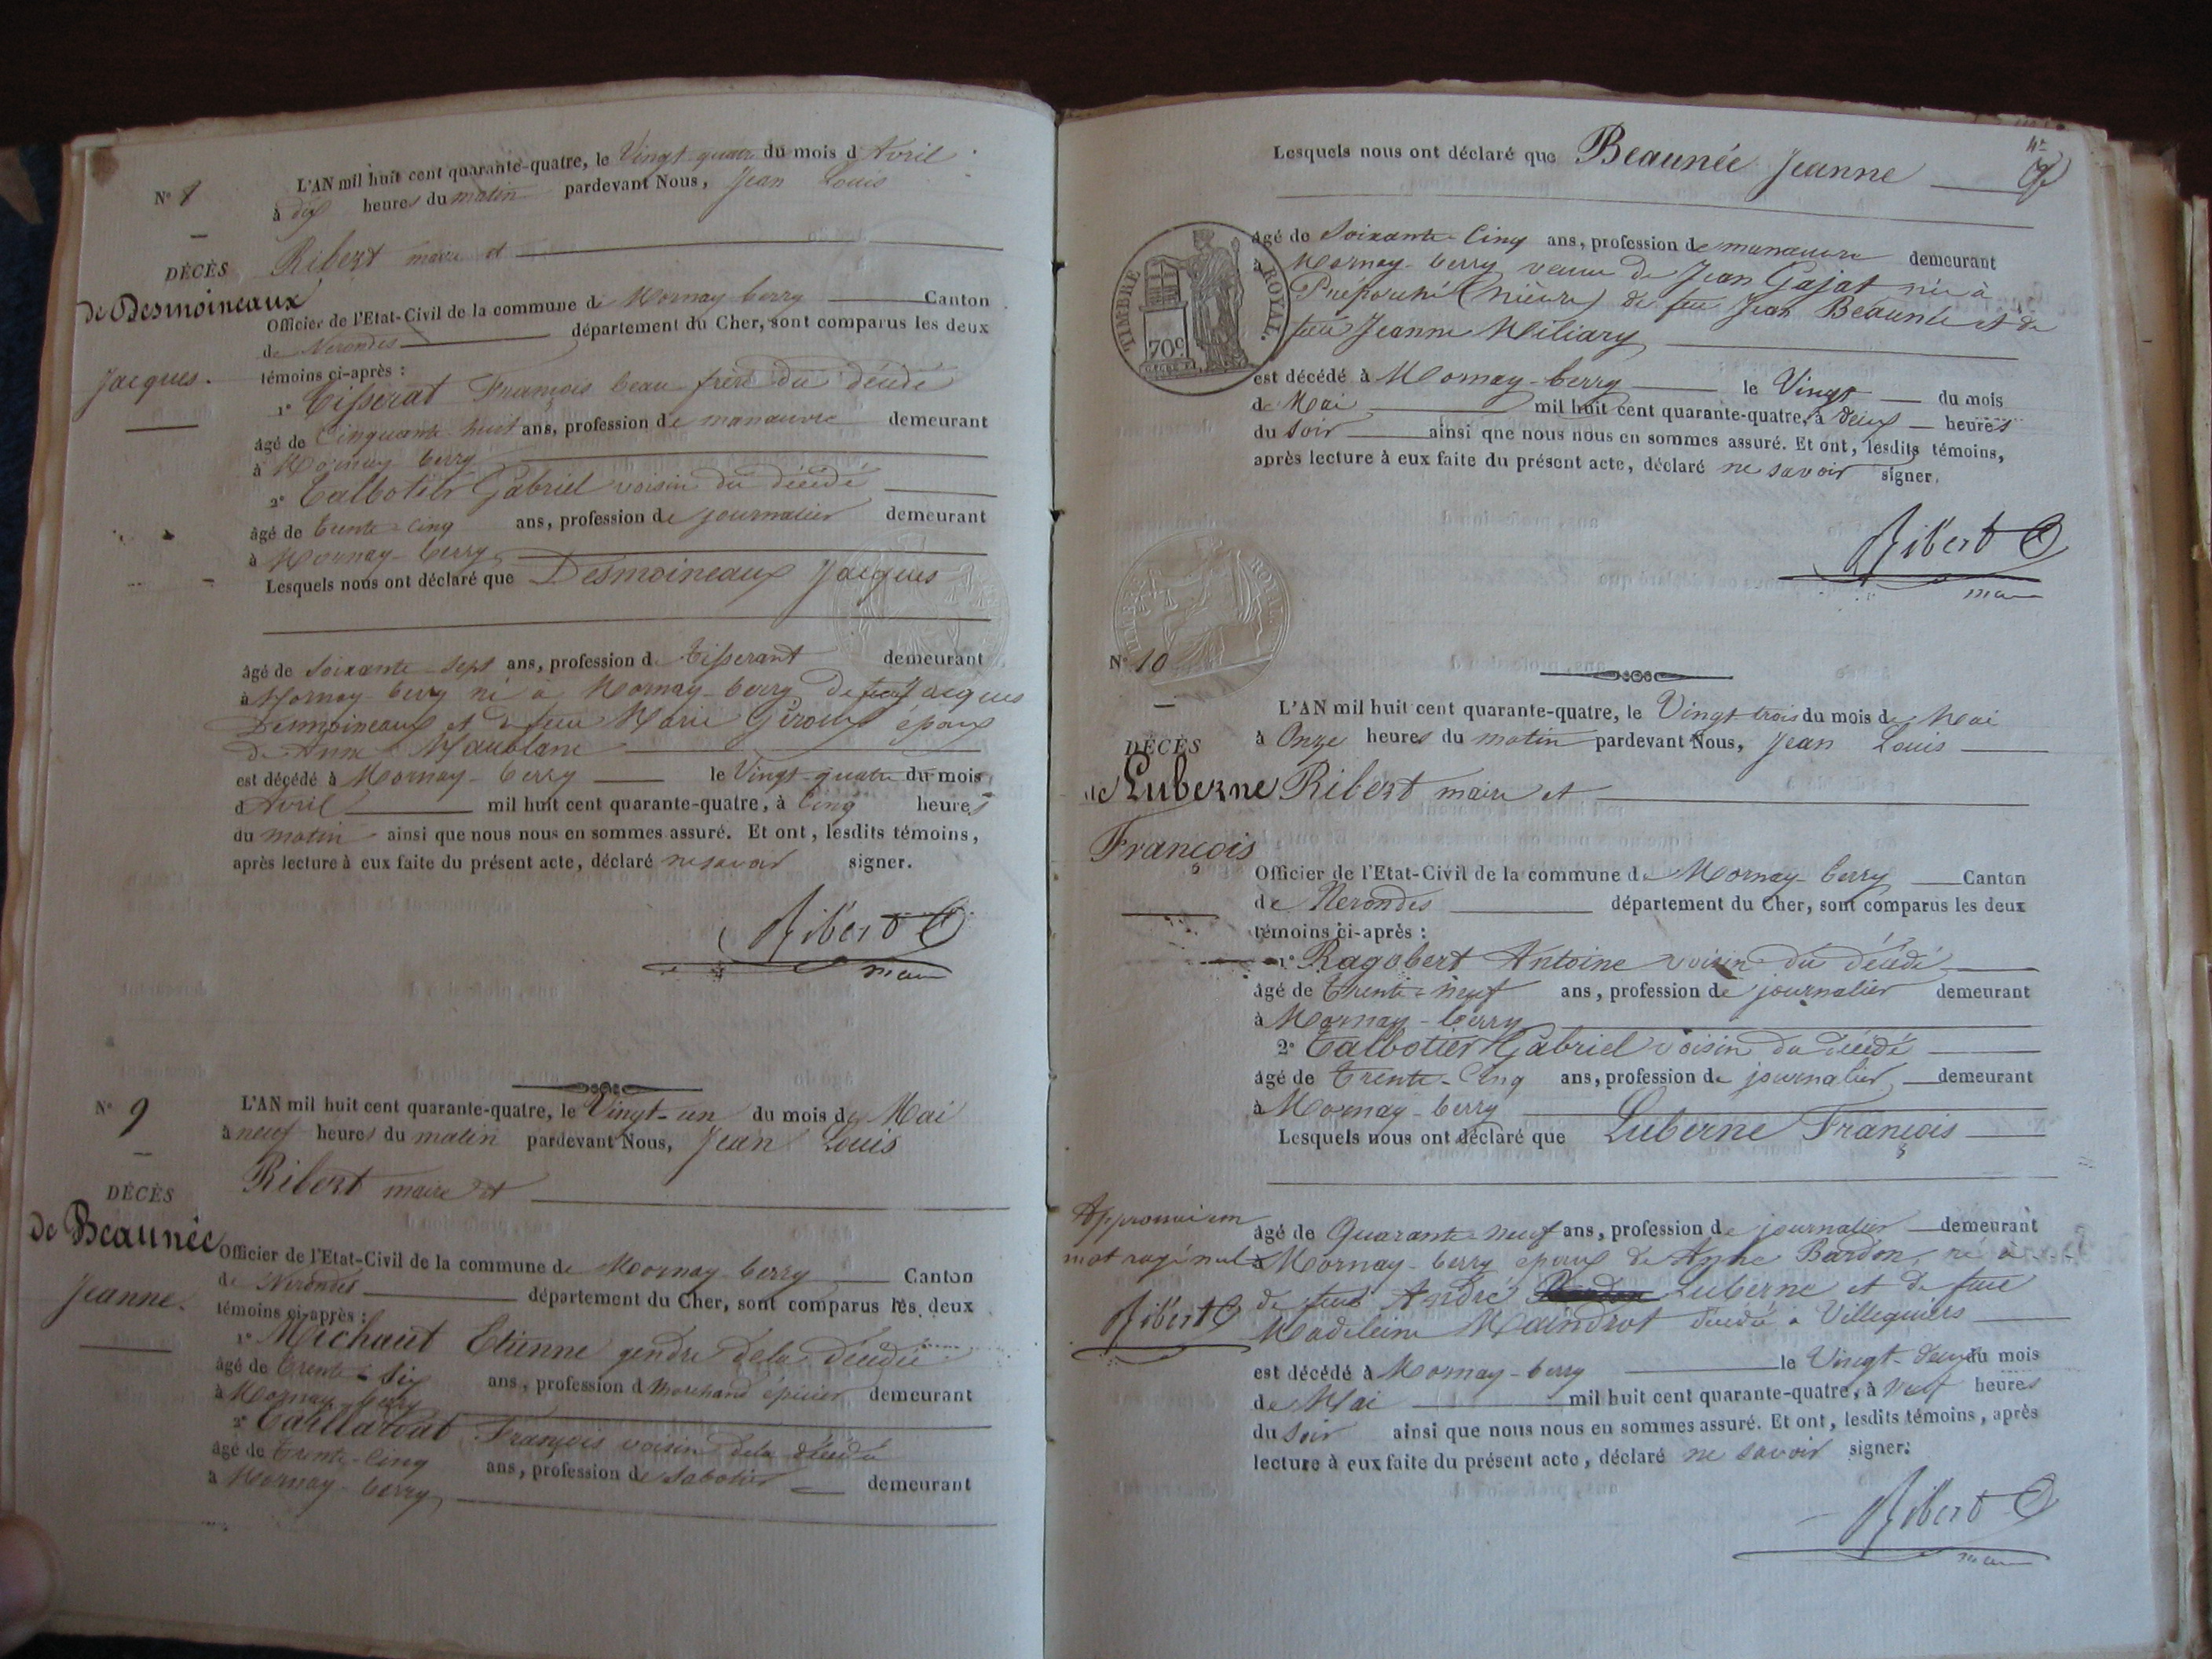 N° 8
DÉCÈS
de Desmoineaux
Jacques.
L'AN mil huit cent quarante-quatre, le Vingt-quatre du mois d'Avril
à dix heures du matin pardevant Nous, Jean Louis
Ribert maire et
Officier de l'Etat-Civil de la commune de Mornay-berry Canton
de Nerondes département du Cher, sont comparus les deux
témoins ci-après :
1° Tisserat François beau-frère du décédé
âgé de Cinquante huit ans, profession de manœuvre demeurant
à Mornay-berry
2° Talbotier Gabriel voisin du décédé
âgé de trente-cinq ans, profession de journalier demeurant
à Mornay-berry
Lesquels nous ont déclaré que Desmoineaux Jacques
âgé de soixante-sept ans, profession de Tisserant demeurant
à Mornay-berry né à Mornay-berry de feu Jacques
Desmoineaux et de feue Marie Giroux époux
de Anne Maublanc
est décédé à Mornay-berry le Vingt-quatre du mois
d'Avril mil huit cent quarante-quatre, à Cinq heures
du matin ainsi que nous nous en sommes assuré. Et ont, lesdits témoins,
après lecture à eux faite du présent acte, déclaré ne savoir signer.
Ribert
maire
N° 9
DÉCÈS
de Beaunée
Jeanne.
L'AN mil huit cent quarante-quatre, le Vingt-un du mois de Mai
à neuf heures du matin pardevant Nous, Jean Louis
Ribert maire et
Officier de l'Etat-Civil de la commune de Mornay-berry Canton
de Nerondes département du Cher, sont comparus les deux
témoins ci-après :
1° Michaut Etienne gendre de la décédée
âgé de trente-six ans, profession de Marchand épicier demeurant
à Mornay-berry
2° François voisin de la décédée
âgé de trente-cinq ans, profession de sabotier demeurant
à Mornay-berry
Lesquels nous ont déclaré que Beaunée Jeanne
TIMBRE ROYAL.
70c
âgé de soixante-Cinq ans, profession de manœuvre demeurant
à Mornay-berry veuve de Jean Gajat née à
(nièvre) de feu Jean Beaunée et de
feue Jeanne Miliary
est décédé à Mornay-berry le Vingt du mois
de Mai mil huit cent quarante-quatre, à deux heures
du soir ainsi que nous nous en sommes assuré. Et ont, lesdits témoins,
après lecture à eux faite du présent acte, déclaré ne savoir signer.
Ribert
maire
N° 10
DÉCÈS
de Luberne
François
L'AN mil huit cent quarante-quatre, le Vingt-trois du mois de Mai
à Onze heures du matin pardevant Nous, Jean Louis
Ribert maire et
Officier de l'Etat-Civil de la commune de Mornay-berry Canton
de Nerondes département du Cher, sont comparus les deux
témoins ci-après :
1° Ragobert Antoine voisin du décédé
âgé de Trente-neuf ans, profession de journalier demeurant
à Mornay-berry
2° Talbotier Gabriel voisin du décédé
âgé de Trente-Cinq ans, profession de journalier demeurant
à Mornay-berry
Lesquels nous ont déclaré que Luberne François
Approuvé un
mot rayé nul
Ribert
âgé de Quarante-neuf ans, profession de journalier demeurant
à Mornay-berry époux de Anne Bardon, né à
de feu André Luberne et de feue
Madeleine Maindrot décédée à Villequiers
est décédé à Mornay-berry le Vingt-deux du mois
de Mai mil huit cent quarante-quatre, à neuf heures
du soir ainsi que nous nous en sommes assuré. Et ont, lesdits témoins, après
lecture à eux faite du présent acte, déclaré ne savoir signer.
Ribert
maire